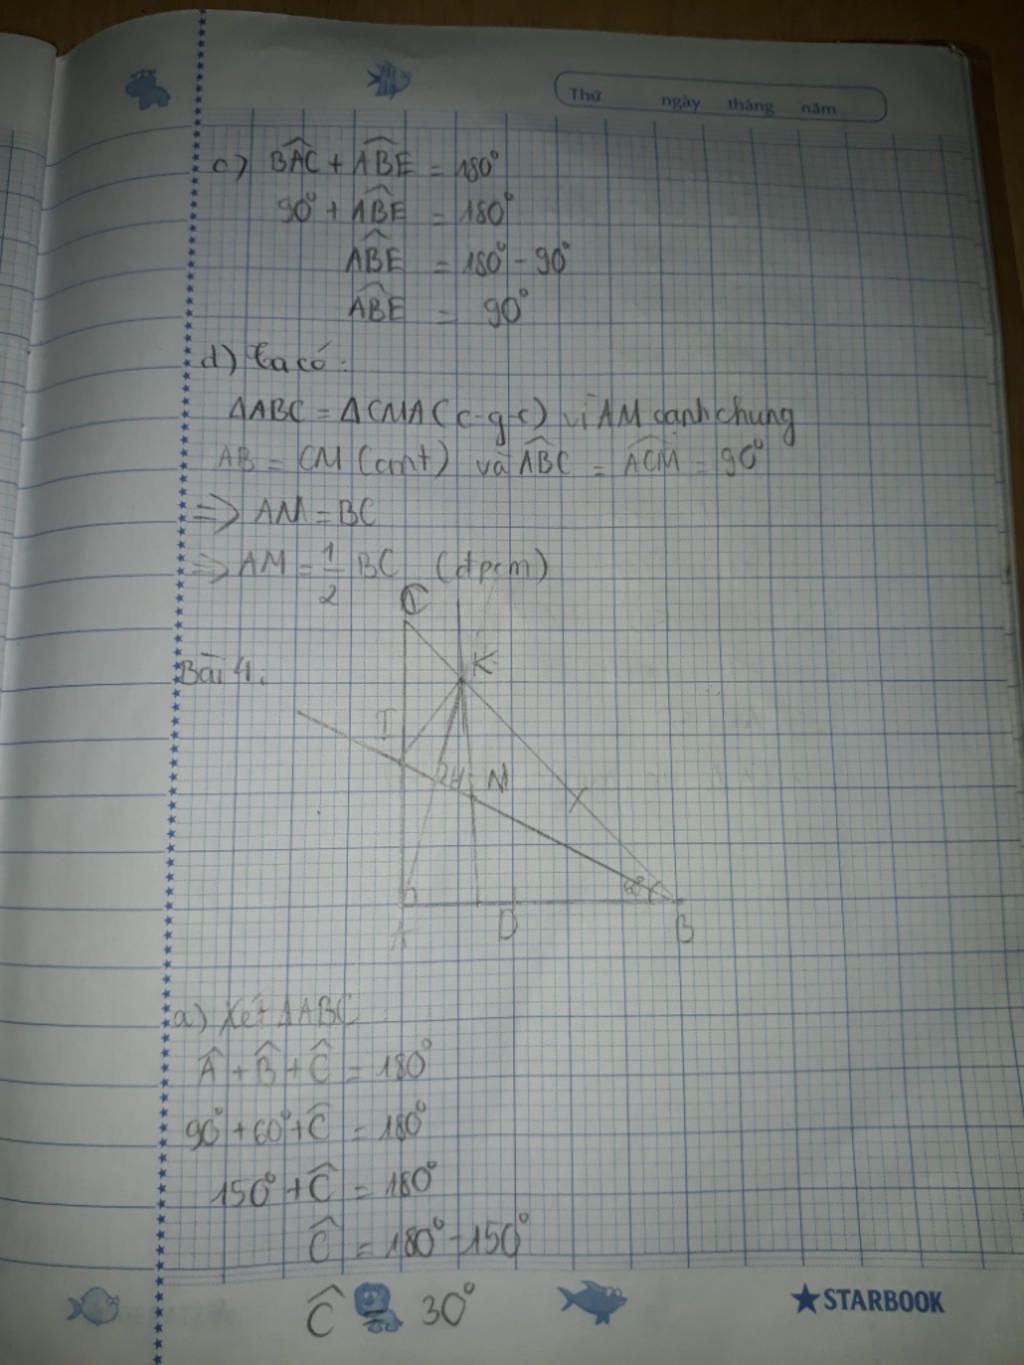 Thứ ngày tháng năm
c) BÂC + ABÊ = 180°
90° + ABÊ = 180°
ABÊ = 180° - 90°
ABÊ = 90°
d) Ta có:
ΔABC = ΔCMA (c-g-c) vì AM cạnh chung
AB = CM (cmt) và ABC = ACM = 90°
=> AM = BC
=> AM = 1/2 BC (đpcm)
C
Bài 4:
K
I
H N
A D B
a) Xét ΔABC
Â + B̂ + Ĉ = 180°
90° + 60° + Ĉ = 180°
150° + Ĉ = 180°
Ĉ = 180° - 150°
Ĉ = 30°
★STARBOOK